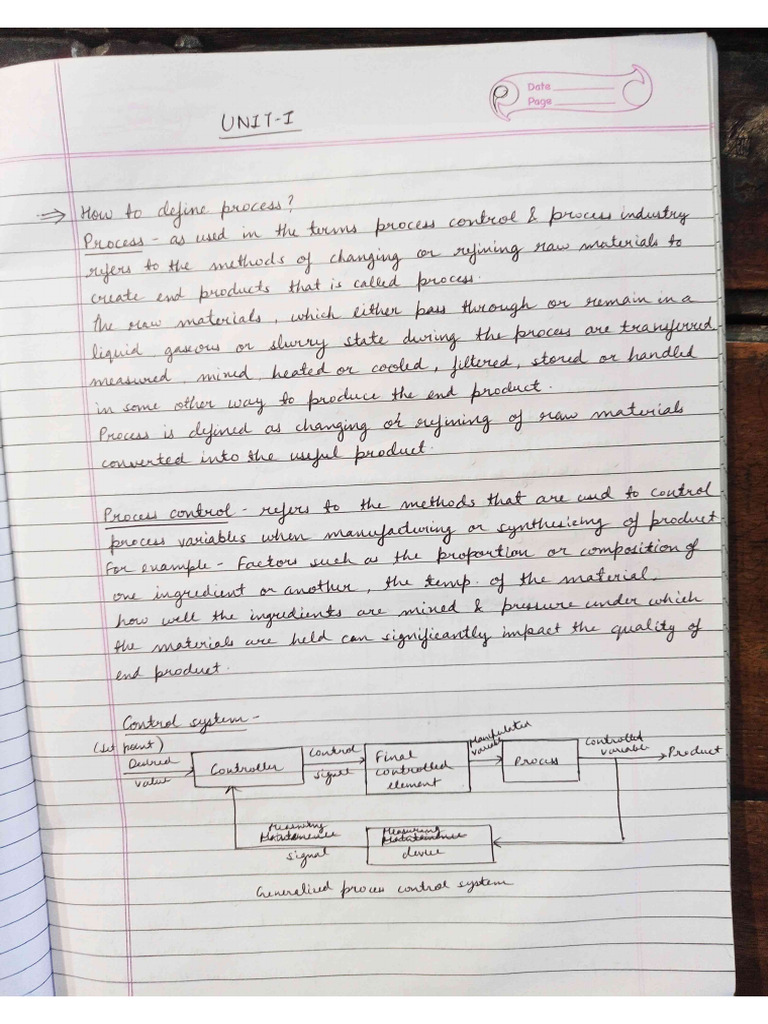 Date
Page
UNIT-I
⇒ How to define process?
Process - as used in the terms process control & process industry
refers to the methods of changing or refining raw materials to
create end products that is called process.
The raw materials, which either pass through or remain in a
liquid, gaseous or slurry state during the process are transferred,
measured, mixed, heated or cooled, filtered, stored or handled
in some other way to produce the end product.
Process is defined as changing or refining of raw materials
converted into the useful product.
Process control - refers to the methods that are used to control
process variables when manufacturing or synthesicing of product
For example - Factors such as the proportion or composition of
one ingredient or another, the temp. of the material,
how well the ingredients are mixed & pressure under which
the materials are held can significantly impact the quality of
end product.
Control system -
(set point)
Desired
value
Controller
Control
signal
Final
controlled
element
Manipulated
variable
Process
Controlled
variable
Product
Measuring
signal
Measuring
device
Generalized process control system